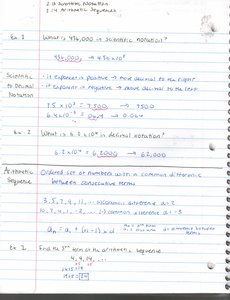 2.13 Scientific Notation
2.14 Arithmetic Sequences
Ex. 1 What is 456,000 in scientific notation?
456,000 → 4.56 x 10⁵
Scientific to Decimal Notation
• if exponent is positive → move decimal to the right
• if exponent is negative → move decimal to the left
7.5 x 10³ = 7,500 → 7500
Ex. 2 What is 6.2 x 10⁴ in decimal notation?
6.2 x 10⁴ → 6.2000 → 62,000
Arithmetic Sequence
Ordered set of numbers with a common difference
between consecutive terms
3, 5, 7, 9, 11, ... common difference d = 2
common difference d = -3
aₙ = a₁ + (n-1) x d
d = difference between terms
Find the term of the arithmetic sequence
4, 9, 14, ...